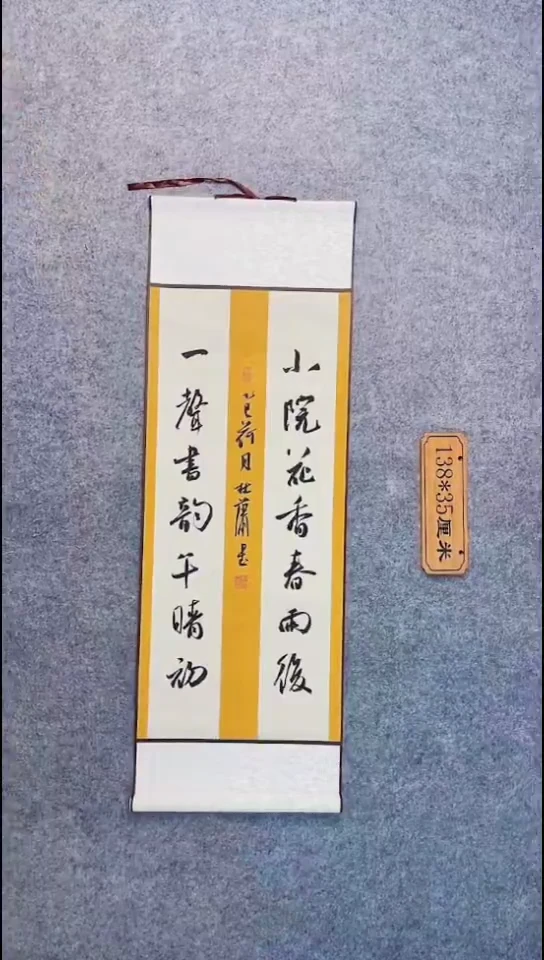 小院花香春雨後
一聲書韵午晴初
乙巳荷月 杜蕭書
138*35厘米